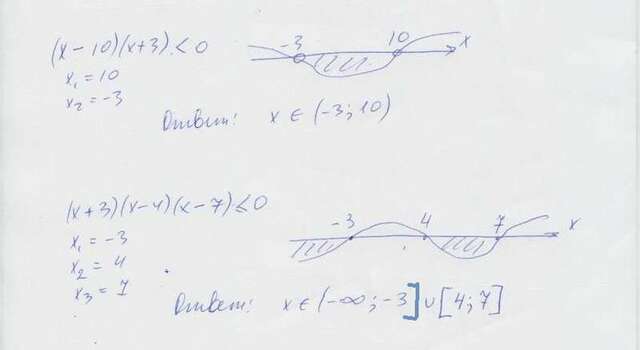 (x-10)(x+3)<0
x₁ = 10
x₂ = -3
-3 10 x
Ответ: x ∈ (-3; 10)
(x+3)(x-4)(x-7)≤0
x₁ = -3
x₂ = 4
x₃ = 7
-3 4 7 x
Ответ: x ∈ (-∞; -3] ∪ [4; 7]